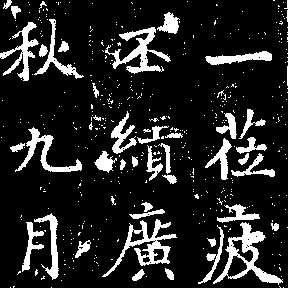 一莅疲
丕績廣
秋九月